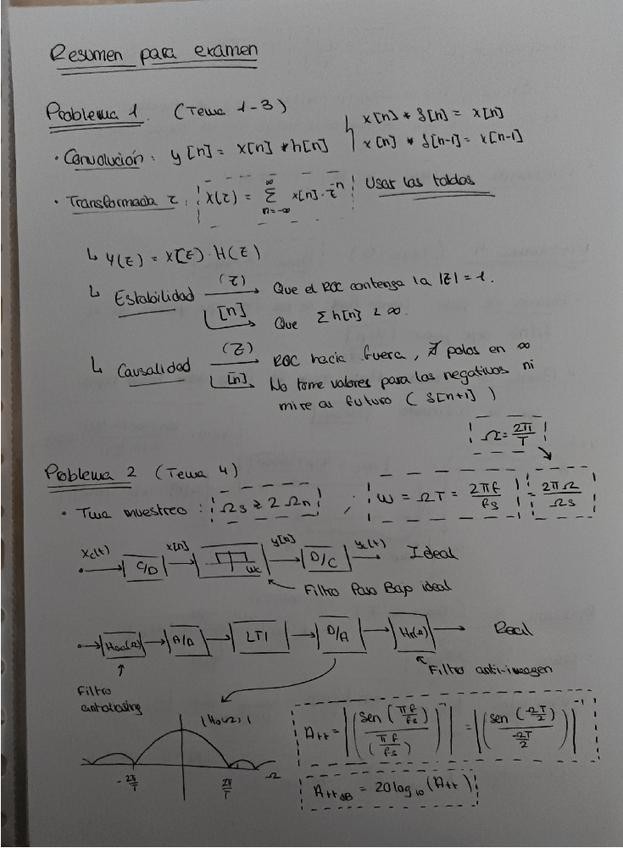 Resumen para examen
Problema 1. (Tema 1-3)
· Convolución: y[n] = x[n] * h[n]
x[n] * δ[n] = x[n]
x[n] * δ[n-1] = x[n-1]
· Transformada z: X(z) = Σ_{n=-∞}^{∞} x[n]·z^{-n}
Usar las tablas
↳ Y(z) = X(z)·H(z)
↳ Estabilidad (z) → Que el ROC contenga la |z| = 1.
[n] → Que Σ h[n] < ∞.
↳ Causalidad (z) → ROC hacia fuera, ∄ polos en ∞
[n] No tome valores para los negativos ni
mire al futuro (δ[n+1])
Ω = 2π/T
Problema 2 (Tema 4)
· Tma muestreo: Ωs ≥ 2 Ωn ; ω = ΩT = 2πf/fs = 2πΩ/Ωs
xc(t) C/D x[n] ωc y[n] D/C yc(t) Ideal
Filtro Paso Bajo ideal
Haa(Ω) A/D LTI D/A Hr(Ω) Real
Filtro antialiasing
Filtro anti-imagen
|Ho(Ω)|
-2π/T 2π/T Ω
Att = |(sen(πf/fs)/(πf/fs))^{-1}| = |(sen(ΩT/2)/(ΩT/2))^{-1}|
Att dB = 20 log10 (Att)